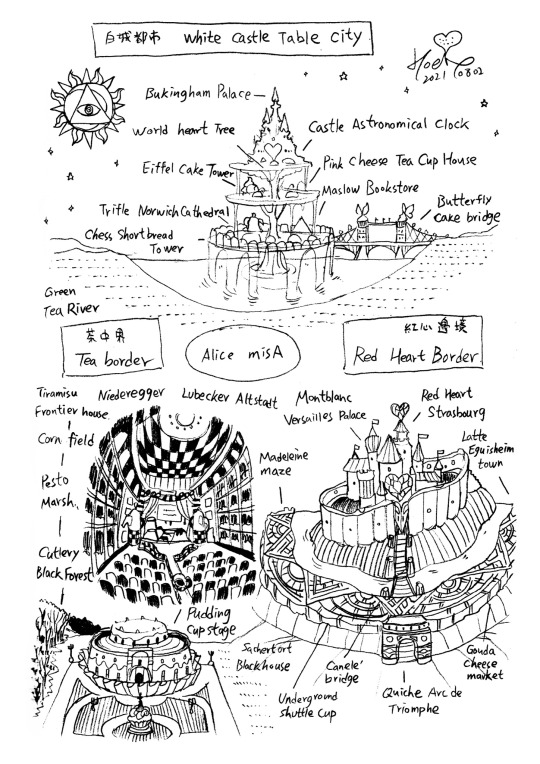 白城都市 White Castle Table City
2021 0802
Bukingham Palace
World heart Tree
Castle Astronomical Clock
Eiffel Cake Tower
Pink Cheese Tea Cup House
Maslow Bookstore
Trifle Norwich Cathedral
Butterfly
cake bridge
Chess Shortbread
Tower
Green
Tea River
茶中界
Tea border
Alice misA
紅心邊境
Red Heart Border
Tiramisu
Frontier house
Niederegger
Lubecker Altstadt
Montblanc
Versailles Palace
Red Heart
Strasbourg
Corn field
Latte
Eguisheim
town
Madeleine
maze
Pesto
Marsh.
Cutlery
Black Forest
Pudding
Cup stage
Sachertort
Blackhouse
Canele'
bridge
Gouda
cheese
market
Underground
shuttle cup
Quiche Arc de
Triomphe